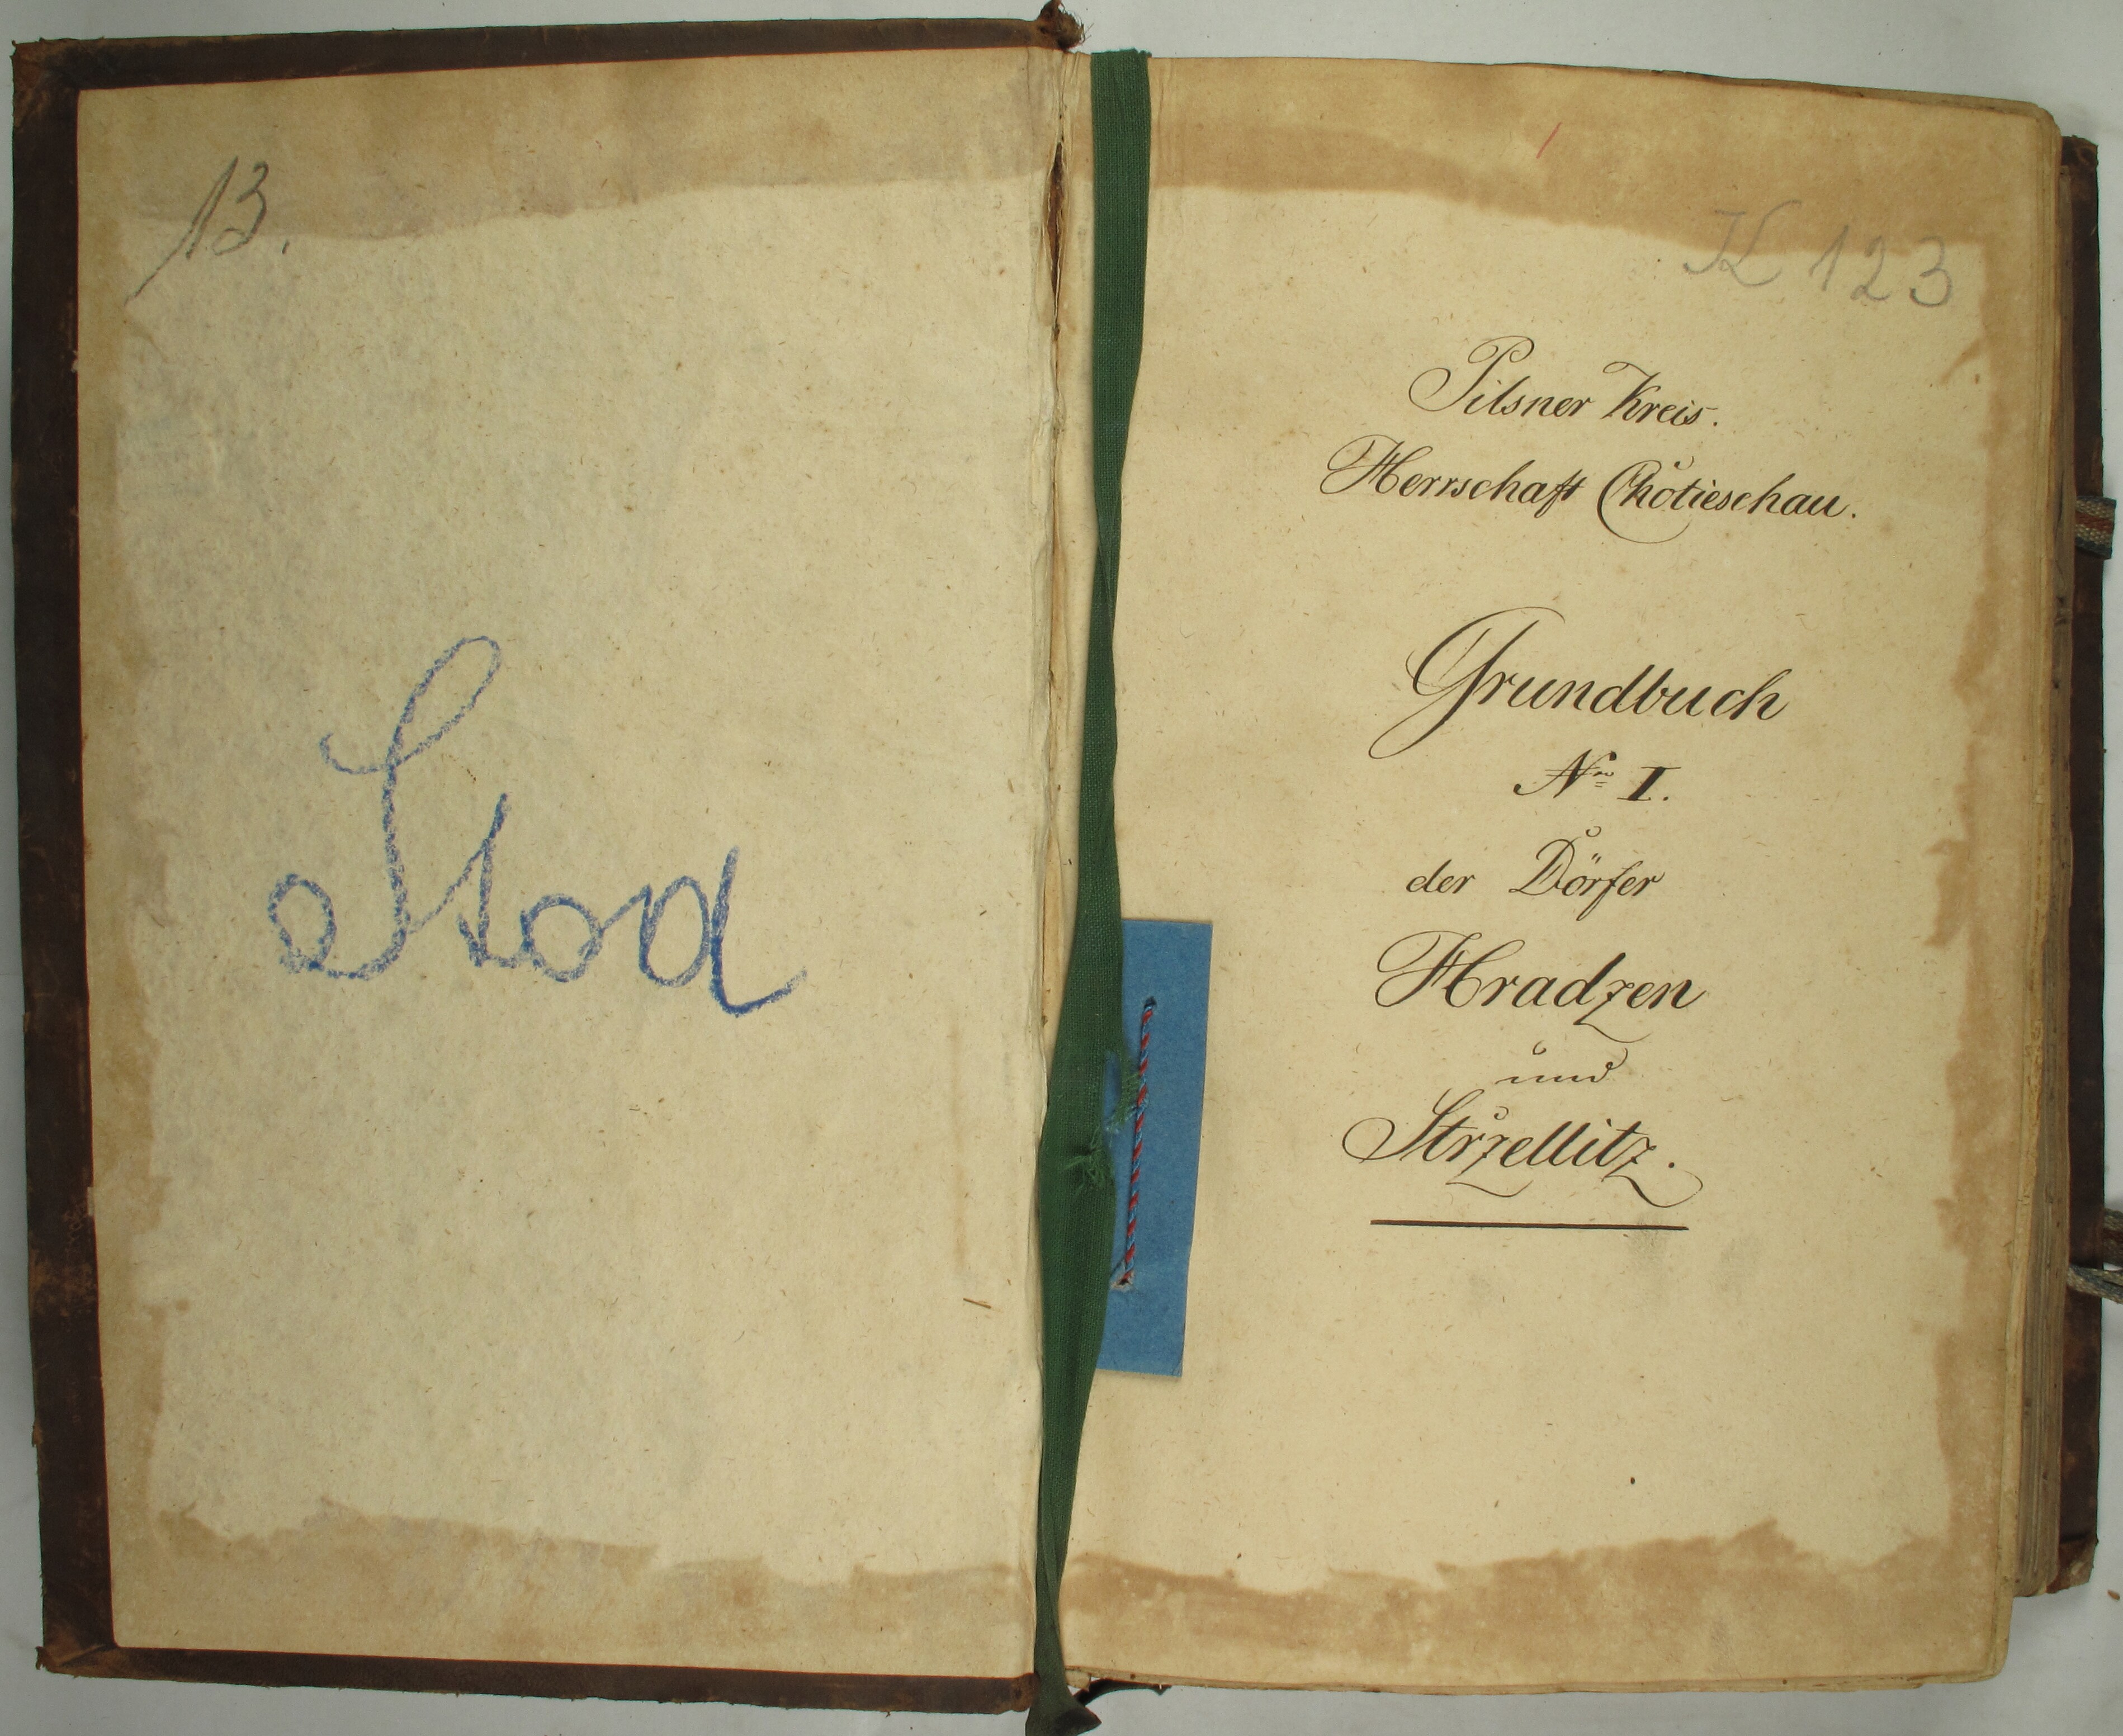 13.
Stod
K 123
Pilsner Kreis.
Herrschaft Chotieschau.
Grundbuch
Nro I.
der Dörfer
Hradzen
und
Strzellitz.